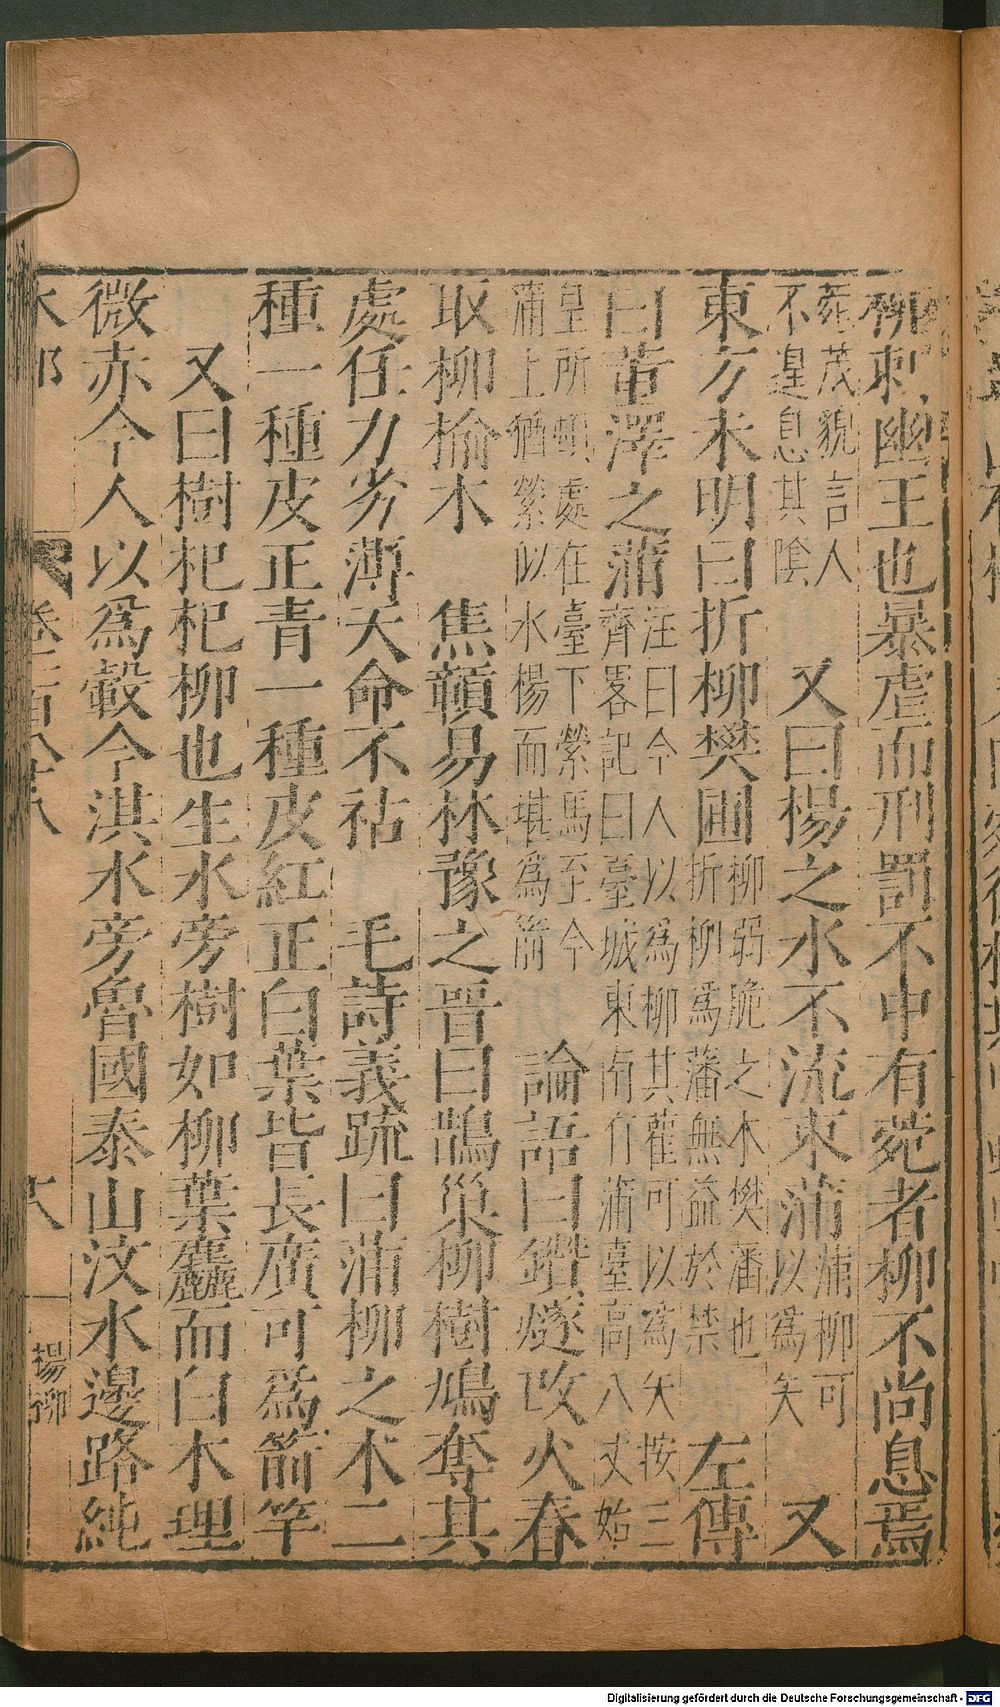 柳刺幽王也暴虐而刑罰不中有菀者柳不尚息焉
菀茂貌言人
不遑息其陰
又曰楊之水不流束蒲
蒲柳可
以爲矢
又
東方未明曰折柳樊圃
柳弱脆之木樊藩也
折柳爲藩無益於禁
左傳
曰董澤之蒲
注曰今人以爲柳其雚可以爲矢按三
齊畧記曰臺城東南有蒲臺高八丈始
皇所頓處在臺下縈馬至今
蒲上猶縈似水楊而堪爲箭
論語曰鑽燧改火春
取柳榆木　焦贛易林豫之晋曰鵲巢柳樹鳩奪其
處任力劣薄天命不祐　毛詩義疏曰蒲柳之木二
種一種皮正青一種皮紅正白葉皆長廣可爲箭竿
又曰樹杞杞柳也生水旁樹如柳葉麤而白木理
微赤今人以爲轂今淇水旁魯國泰山汶水邊路純
楊柳
Digitalisierung gefördert durch die Deutsche Forschungsgemeinschaft - DFG